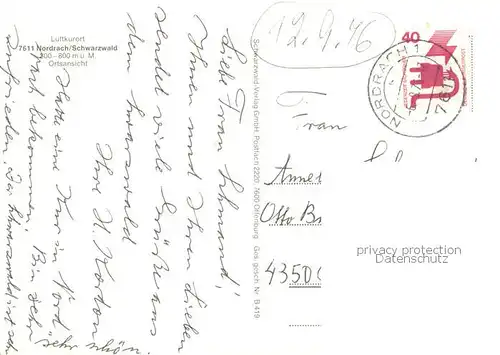 Luftkurort
7611 Nordrach/Schwarzwald
300 - 800 m ü. M.
Ortsansicht
12.9.76
Liebe Frau Lehmand,
Ihnen und Ihren Lieben
sendet viele Grüße aus
dem Schwarzwald
Ihre H. Kordon
Hatte eine Kur in Nord
rach bekommen. Bin sehr
zufrieden. Der Schwarzwald ist sehr
sehr schön.
Schwarzwald-Verlag GmbH, Postfach 2220, 7600 Offenburg Ges. gesch. Nr. B 419
40
NORDRACH 1
761
Frau
Otto
4350
privacy protection
Datenschutz